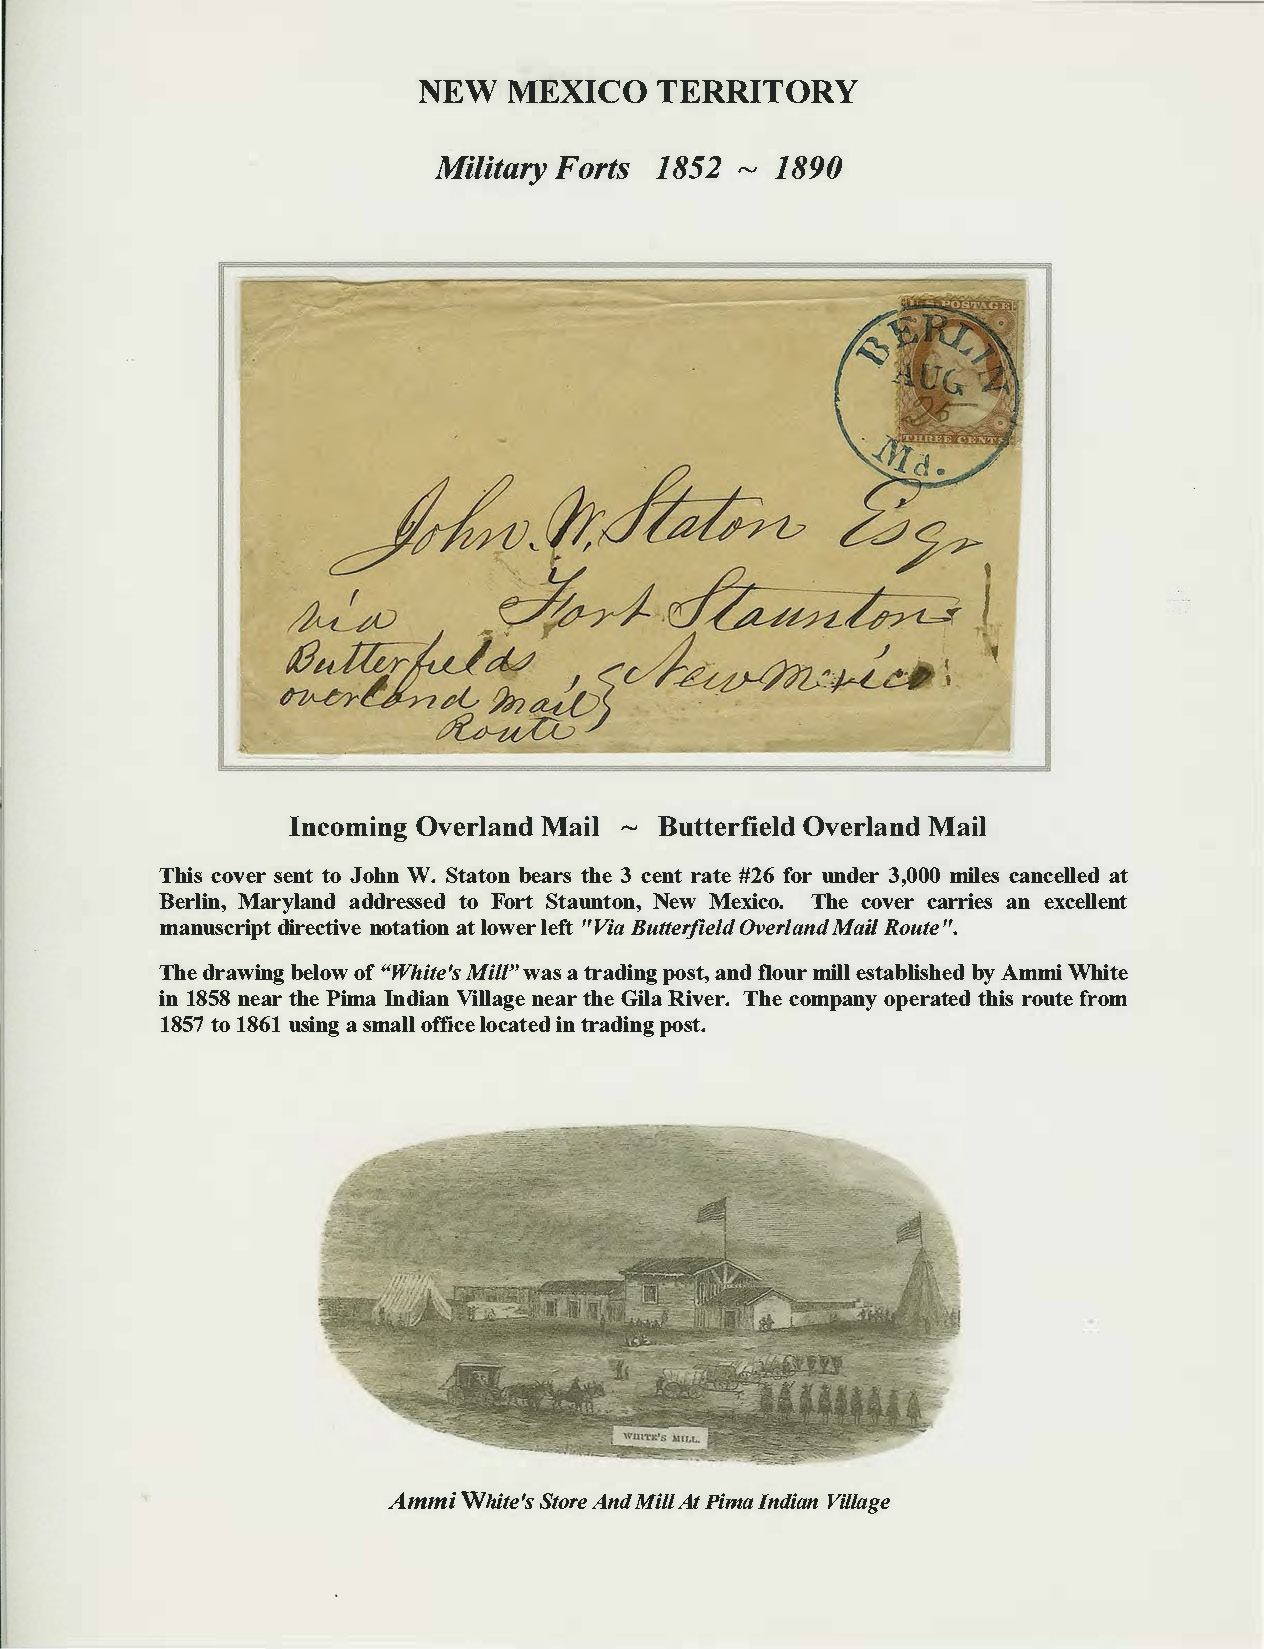 NEW MEXICO TERRITORY
Military Forts 1852 ~ 1890
U.S. POSTAGE
THREE CENTS
BERLIN
AUG
25
Md.
John. W. Staton Esqr
Fort Staunton
New Mexico
via
Butterfields
overland Mail
Route
Incoming Overland Mail ~ Butterfield Overland Mail
This cover sent to John W. Staton bears the 3 cent rate #26 for under 3,000 miles cancelled at
Berlin, Maryland addressed to Fort Staunton, New Mexico. The cover carries an excellent
manuscript directive notation at lower left "Via Butterfield Overland Mail Route".
The drawing below of “White's Mill” was a trading post, and flour mill established by Ammi White
in 1858 near the Pima Indian Village near the Gila River. The company operated this route from
1857 to 1861 using a small office located in trading post.
WHITE'S MILL.
Ammi White's Store And Mill At Pima Indian Village